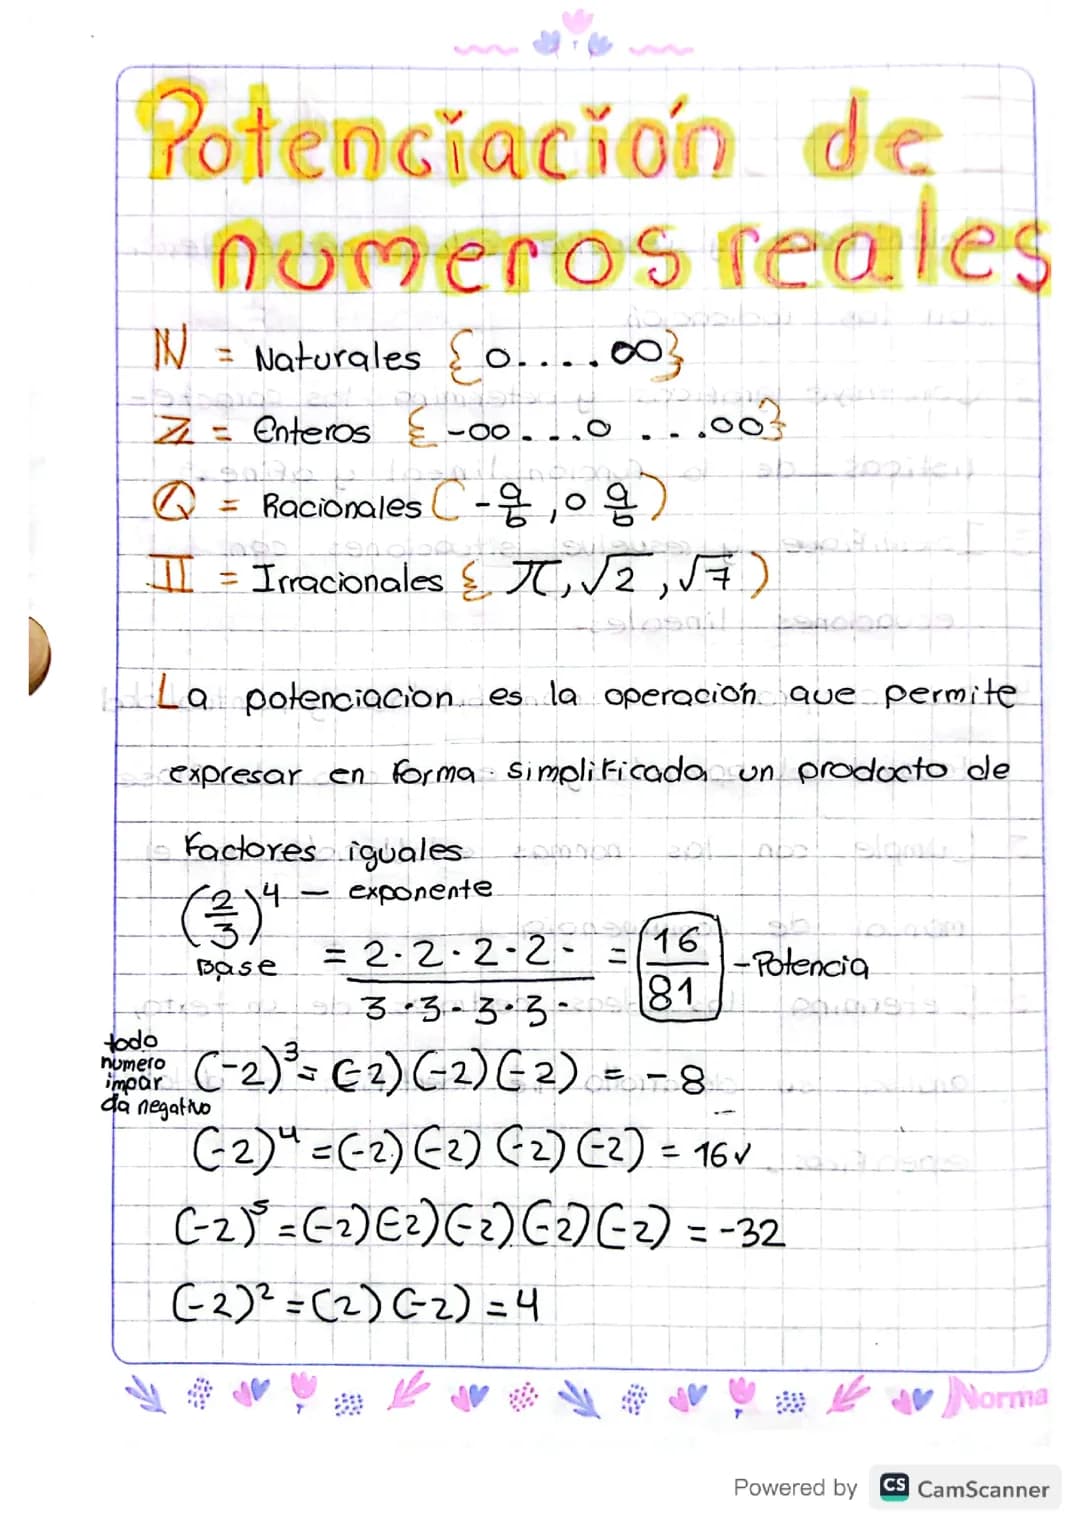 Potenciación de
numeros reales
ℕ = Naturales {0.....∞}
ℤ = Enteros {-∞...0 ....∞}
ℚ = Racionales (-a/b, 0 a/b)
𝕀 = Irracionales { π, √2, √7 )
La potenciacion es la operación que permite
expresar en forma simplificada un producto de
factores iguales
(2/3)⁴ — exponente
Base = 2·2·2·2· / 3·3·3·3· = 16/81 - Potencia
todo
numero
impar
da negativo
(-2)³ = (-2)(-2)(-2) = -8
(-2)⁴ = (-2)(-2)(-2)(-2) = 16✓
(-2)⁵ = (-2)(-2)(-2)(-2)(-2) = -32
(-2)² = (2)(-2) = 4
Norma
Powered by CS CamScanner